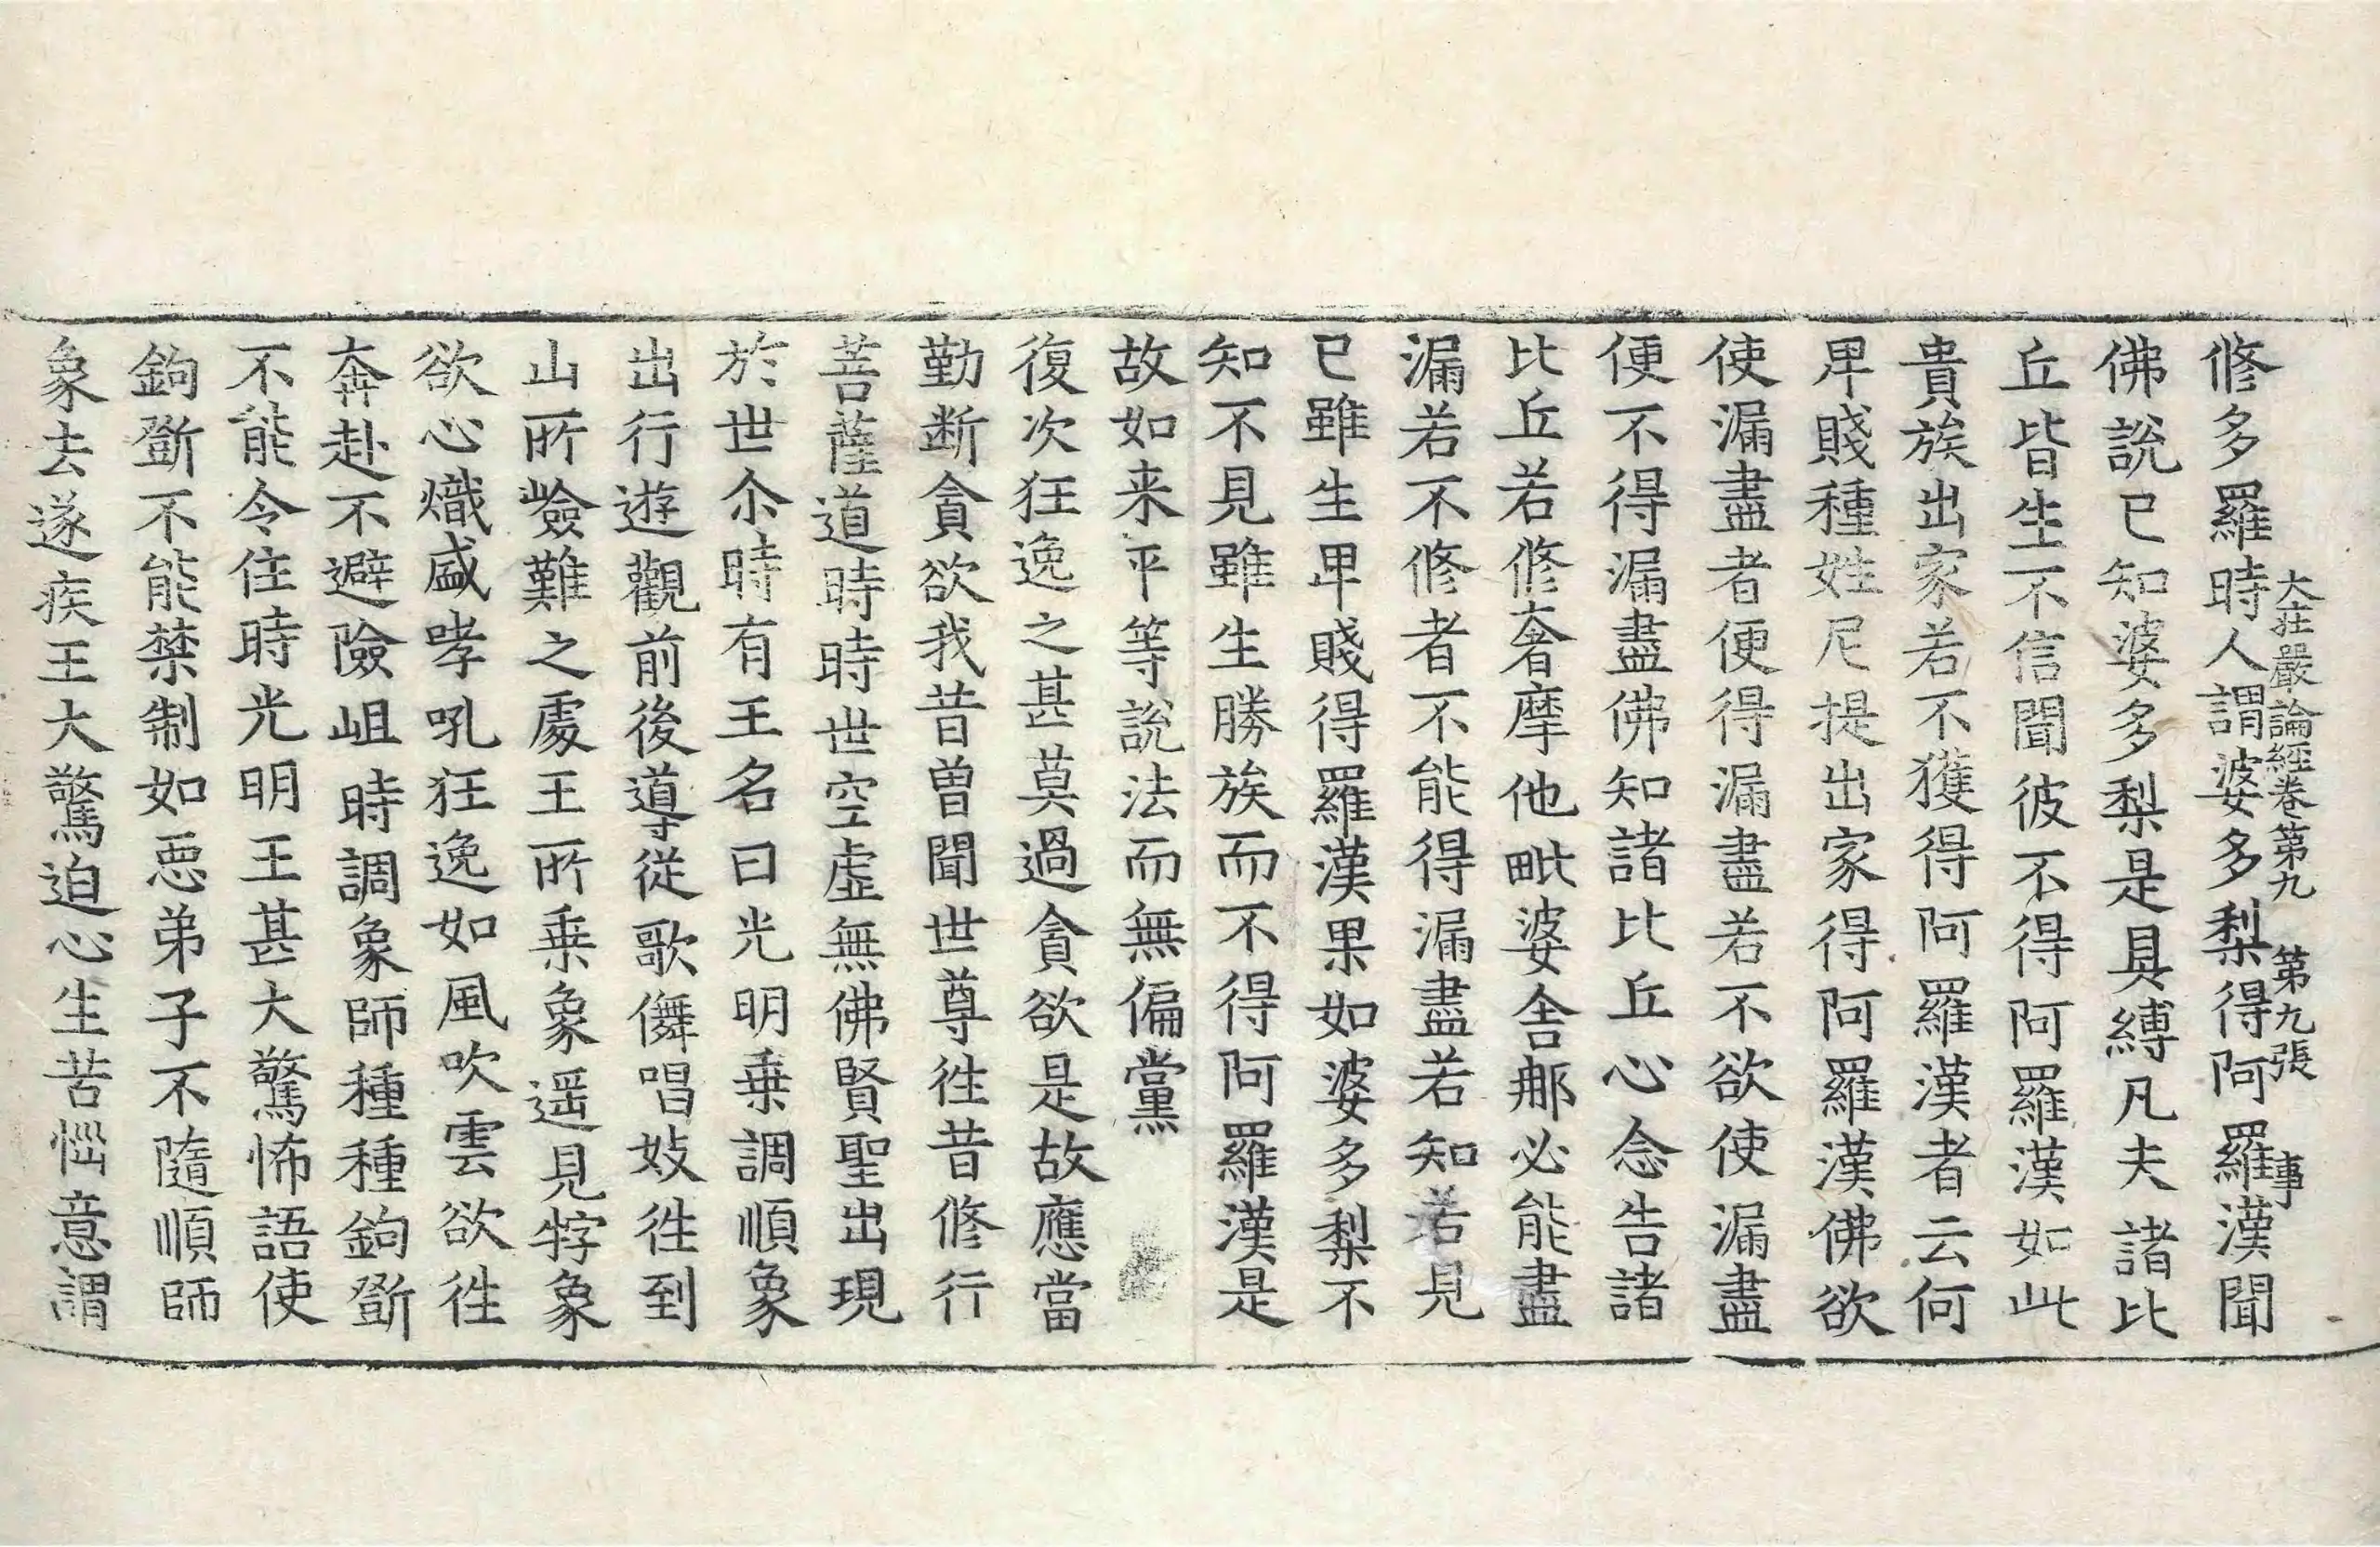 大荘嚴論經卷第九 第九張 事
修多羅時人謂婆多梨得阿羅漢聞
佛說已知婆多梨是具縛凡夫諸比
丘皆生不信聞彼不得阿羅漢如此
貴族出家若不獲得阿羅漢者云何
卑賤種姓尼提出家得阿羅漢佛欲
使漏盡者便得漏盡若不欲使漏盡
便不得漏盡佛知諸比丘心念告諸
比丘若修奢摩他毗婆舍那必能盡
漏若不修者不能得漏盡若知若見
已雖生卑賤得羅漢果如婆多梨不
知不見雖生勝族而不得阿羅漢是
故如来平等說法而無偏黨
復次狂逸之甚莫過貪欲是故應當
勤断貪欲我昔曾聞世尊徃昔修行
菩薩道時時世空虛無佛賢聖出現
於世尒時有王名曰光明乗調順象
出行遊觀前後導從歌儛唱妓徃到
山所嶮難之處王所乗象遥見牸象
欲心熾盛哮吼狂逸如風吹雲欲徃
奔赴不避險岨時調象師種種鉤斵
不能令住時光明王甚大驚怖語使
鉤斵不能禁制如惡弟子不隨順師
象去遂疾王大驚迫心生苦惱意謂